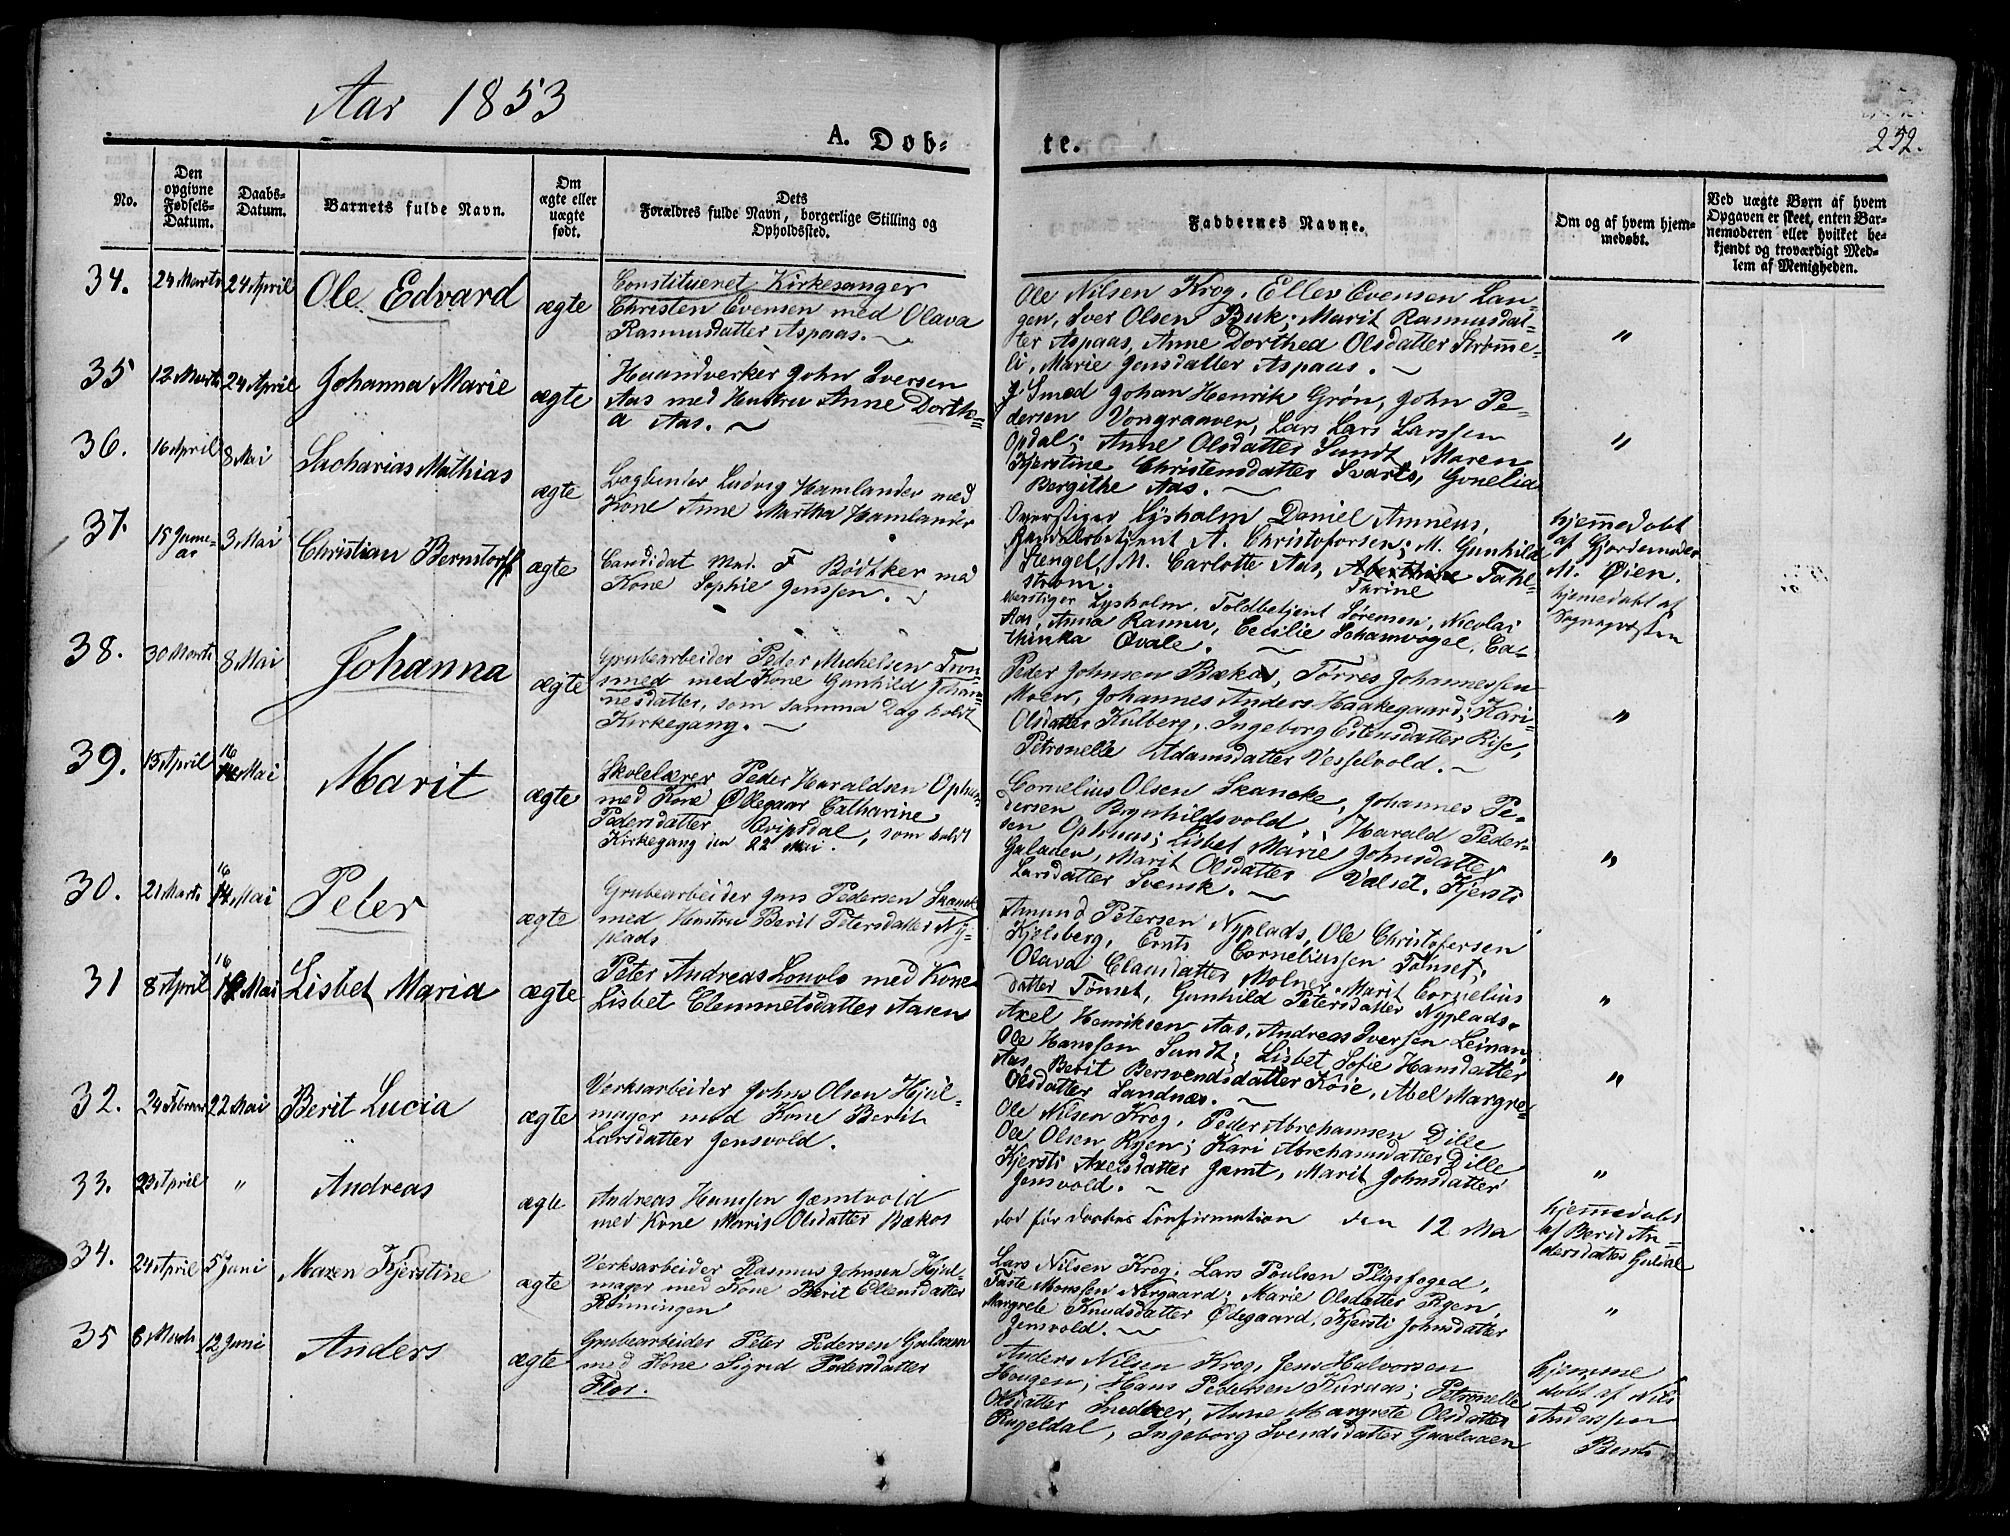 Aar 1853
A. Døb-
te.
252.
No.
Den opgivne Fødsels-Datum.
Daabs-Datum.
Barnets fulde Navn.
Om ægte eller uægte født.
Dets Forældres fulde Navn, borgerlige Stilling og Opholdssted.
Faddernes Navne.
Om og af hvem hjemmedøbt.
Ved uægte Børn af hvem Opgaven er skeet, enten Barnemoderen eller hvilket bekjendt og troværdigt Medlem af Menigheden.
34. 24 Marts 24 April Ole Edvard ægte
Constitueret Kirkesanger
Christen Evensen med Olava
Rasmusdatter Aspaas.
Ole Nilsen Krog, Ellev Evensen Lan-
gen, Iver Olsen Buk; Marit Rasmusdat-
ter Aspaas, Anne Dorthea Olsdatter Strømme-
li, Marie Jensdatter Aspaas. "
35 12 Marts 24 April Johanna Marie ægte
Haandverker John Iversen
Aas med Hustru Anne Dorth-
a Aas.
Smed Johan Henrik Grøn, John Pe-
dersen Vongraaven, Lars Lars Larssen
Opdal; Anne Olsdatter Sundt, Maren
Kjerstine Christensdatter Svarts, Gunelia
Bergithe Aas. "
36. 16 April 8 Mai Sacharias Mathias ægte
Bogbinder Ludvig Hamlander med
Kone Anne Martha Hamlander
Overstiger Lysholm Daniel Amneus,
Handelsbetjent A. Christofersen; M. Gunhild
Stengel, M. Carlotte Aas, Turine Fahl-
strøm.
hjemmedøbt
af Gjordemoder
M. Øien.
37. 15 Junu-
ar 3 Mai Christian Bernstorff ægte
Candidat Med. F Bødtker med
Kone Sophie Jenssen.
Overstiger Lysholm, Toldbetjent Sørensen, Nicolai
Aas, Anna Rasmu, Cecilie Schamvogel, Ca-
thinka Qvale.
hjemedøbt af
Sognepresten
38. 30 Marts 8 Mai Johanna ægte
Grubearbeider Peder Michelsen Tron-
smed med Kone Gunhild Johan-
nesdatter, som samme Dag holdt
Kirkegang.
Peder Johnsen Bækos, Tørres Johannessen
Moen, Johannes Anders Haakegaard; Kari
Olsdatter Kulberg, Ingeborg Estensdatter Rise,
Petronelle Adamsdatter Vesselvold. "
39. 13 April 16 Mai Marit ægte
Skolelærer Peder Haraldsen Ophus
med Kone Ollegaar Catharine
Pedersdatter Qvipsdal, som holdt
Kirkegang den 22 Mai.
Cornelius Olsen Skancke, Johannes Pe-
dersen Brynhildsvold, Harald Peder-
sen Ophuus; Lisbet Marie Johnsdatter
Galaaen, Marit Olsdatter Valset, Kjersti
Larsdatter Svensk. "
30. 21 Marts 16 Mai Peter ægte
Grubearbeider Jens Pedersen Skancke
med Hustru Berit Petersdatter Ny-
plads
Amund Petersen Nyplads, Ole Christofersen
Kjelsberg, Ernts Corneliussen Tønset;
Olava Clausdatter Molner, Marit Cornelius
datter Tønset, Gunhild Petersdatter Nyplads. "
31 8 April 16 Mai Lisbet Maria ægte
Peter Andreas Sonvold med Kone
Lisbet Clemmetsdatter Aasen
Axel Henriksen Aas, Andreas Iversen Leinan,
Ole Hanssen Sundt; Lisbet Sofie Hansdatter
Aas, Berit Bersvendsdatter Køie, Abel Margre-
Olsdatter Sandnæs. "
32. 24 Februar 22 Mai Berit Lucia ægte
Verksarbeider Johns Olsen Hjul-
mager med Kone Berit
Larsdatter Jensvold.
Ole Nilsen Krog, Peder Abrehamsen Dille
Ole Olsen Ryen; Kari Abrehamsdatter Dille
Kjersti Axelsdatter Jamt, Marit Johnsdatter
Jensvold. "
33. 23 April " Andreas ægte
Andreas Hanssen Jæmtvold
med Kone Marit Olsdatter Bækos
død før Daabens Confirmation den 12 Mai
hjemmedøbt
af Berit An-
dersdatter Guldal
34. 24 April 5 Juni Maren Kjerstine ægte
Verksarbeider Rasmus Johnsen Hjul-
mager med Kone Berit Ellensdatter
Rønningen
Lars Nilsen Krog, Lars Poulsen Pligtfoged,
Taste Monssen Nørgaard; Marie Olsdatter Ryen,
Margrete Knudsdatter Ødegaard, Kjersti Johnsdatter
Jensvold. "
35 8 Marts 12 Juni Anders ægte
Grubearbeider Peter Pedersen Galaaen
med Kone Sigrid Pedersdatter
Flor.
Anders Nilsen Krog, Jens Halvorsen
Hougen; Hans Pedersen Kuraas; Petronelle
Olsdatter Snedker, Anne Margrete Olsdatter
Rugeldal, Ingeborg Svendsdatter Gaalaaen
hjemme
døbt af Nils
Anderssen
Bents